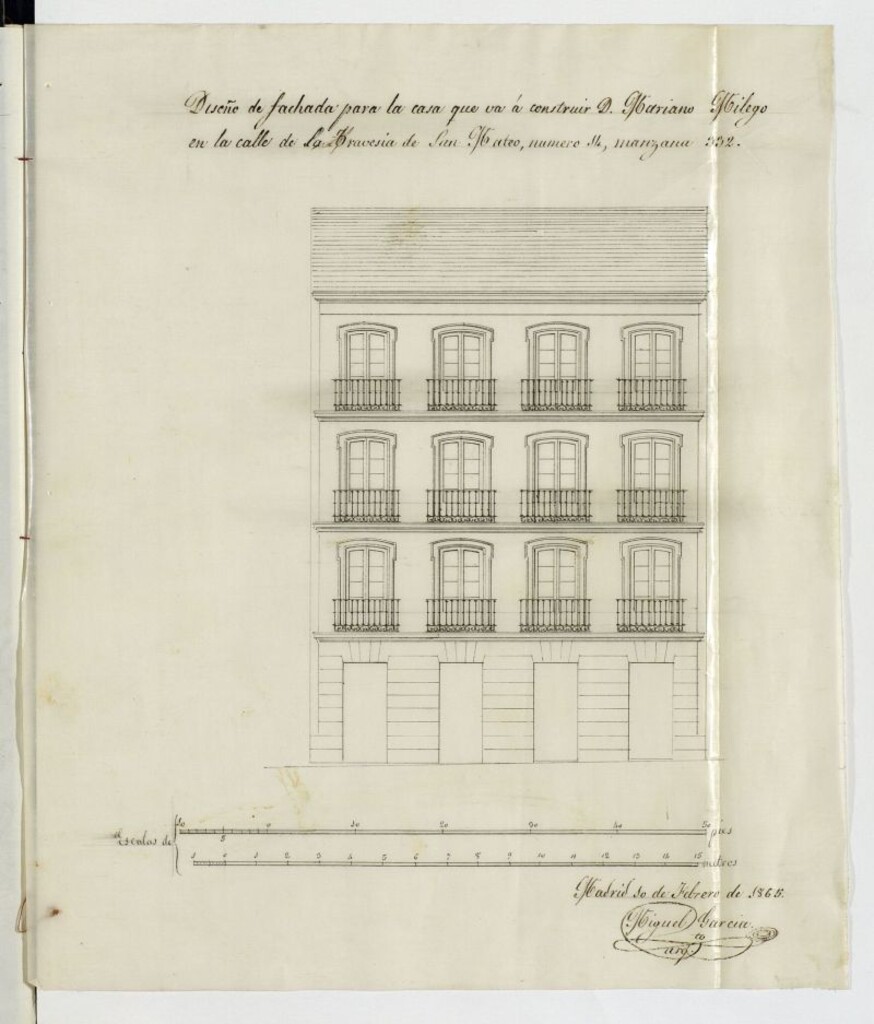 Diseño de fachada para la casa que va á construir D. Mariano Milego
en la calle de La Travesia de San Mateo, numero 14, manzana 332.
Escalas de
10 5 0 10 20 30 40 50 pies
1 0 1 2 3 4 5 6 7 8 9 10 11 12 13 14 15 metros
Madrid 10 de Febrero de 1865.
Miguel Garcia
arq.to